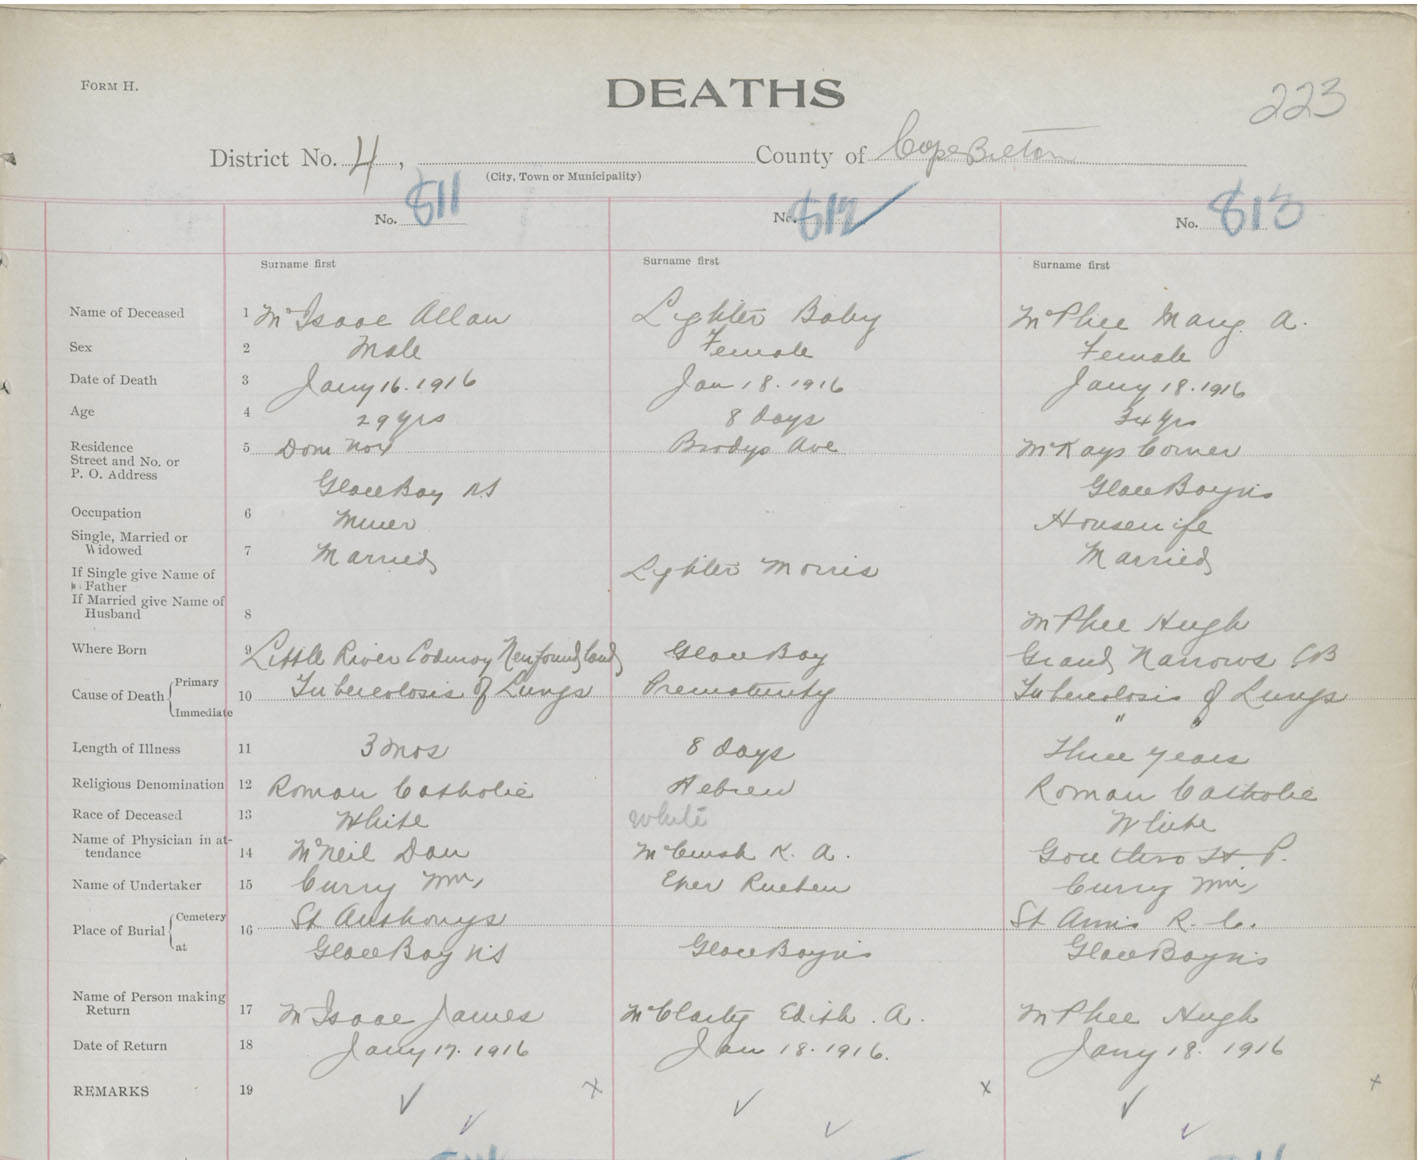 FORM H.
DEATHS
223
District No. 4, County of Cape Breton
(City, Town or Municipality)
No. 811 No. 812 No. 813
Surname first Surname first Surname first
Name of Deceased 1 McIsaac Allan Lighter Baby McPhee Mary A.
Sex 2 Male Female Female
Date of Death 3 Jany 16. 1916 Jan 18. 1916 Jany 18. 1916
Age 4 29 yrs 8 days 34 yrs
Residence 5 Dom No 4 Brodys Ave McKays Corner
Street and No. or
P. O. Address Glace Bay NS Glace Bay NS
Occupation 6 Miner Housewife
Single, Married or
Widowed 7 Married Married
If Single give Name of
Father Lighter Morris
If Married give Name of
Husband 8 McPhee Hugh
Where Born 9 Little River Codroy Newfoundland Glace Bay Grand Narrows CB
Cause of Death Primary 10 Tuberculosis of Lungs Prematurity Tuberculosis of Lungs
Immediate " "
Length of Illness 11 3 mos 8 days Three years
Religious Denomination 12 Roman Catholic Hebrew Roman Catholic
Race of Deceased 13 White White White
Name of Physician in at-
tendance 14 McNeil Dan K. A. H. P.
Name of Undertaker 15 Curry Wm Curry Wm
Place of Burial Cemetery 16 St Anthonys St Anns R. C.
at Glace Bay NS Glace Bay NS Glace Bay NS
Name of Person making
Return 17 McIsaac James Edith A. McPhee Hugh
Date of Return 18 Jany 17. 1916 Jan 18. 1916. Jany 18. 1916
REMARKS 19